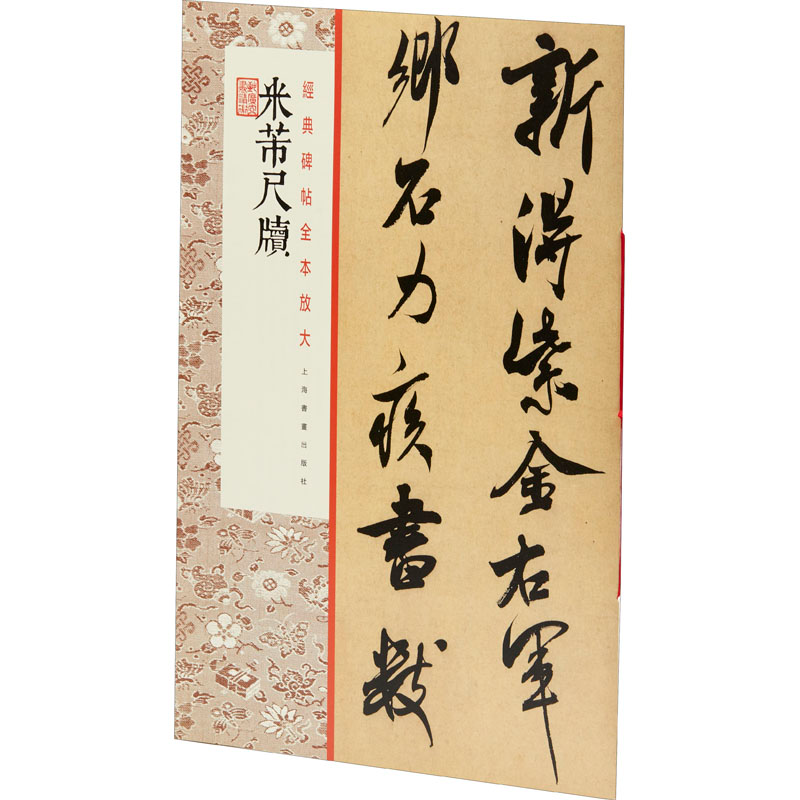 新得紫金右軍
鄉石力疾書數
經典碑帖全本放大
上海書畫出版社
米芾尺牘